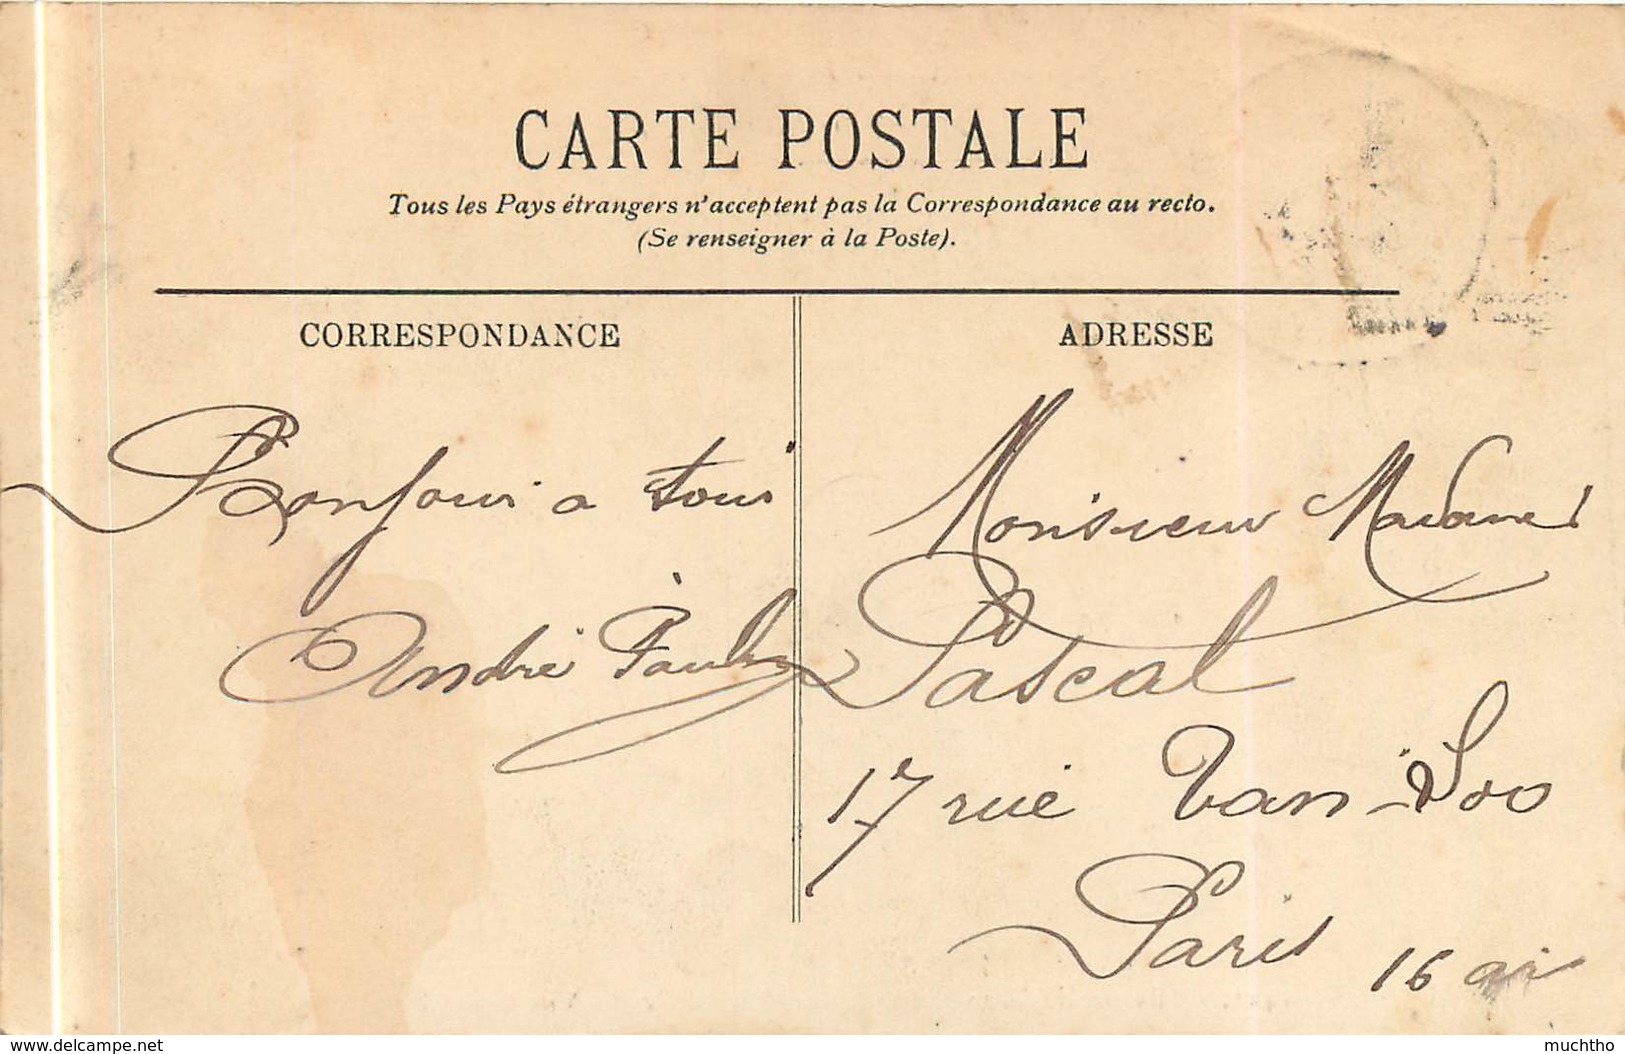 CARTE POSTALE
Tous les Pays étrangers n'acceptent pas la Correspondance au recto.
(Se renseigner à la Poste).
CORRESPONDANCE
Bonjour a tous
André
ADRESSE
Monsieur Madame
Pascal
17 rue Van-Loo
Paris 16 ar
www.delcampe.net
muchtho